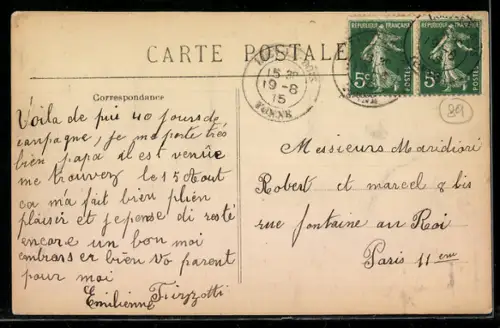 CARTE POSTALE
REPUBLIQUE FRANÇAISE
5c
POSTES
REPUBLIQUE FRANÇAISE
5c
POSTES
15 30
19-8
15
YONNE
89
Correspondance
Voila de pui 40 jours de
campagne, je me porte trés
bien papa il est venue
me trouvez le 15 Aout
ca m'a fait bien plien
plaisir et j'eponse di resté
encore un bon moi
embrasser bien vo parent
pour moi
Emilienne
Messieurs
Robert et marcel 9 bis
rue fontaine au Roi
Paris 11 eme